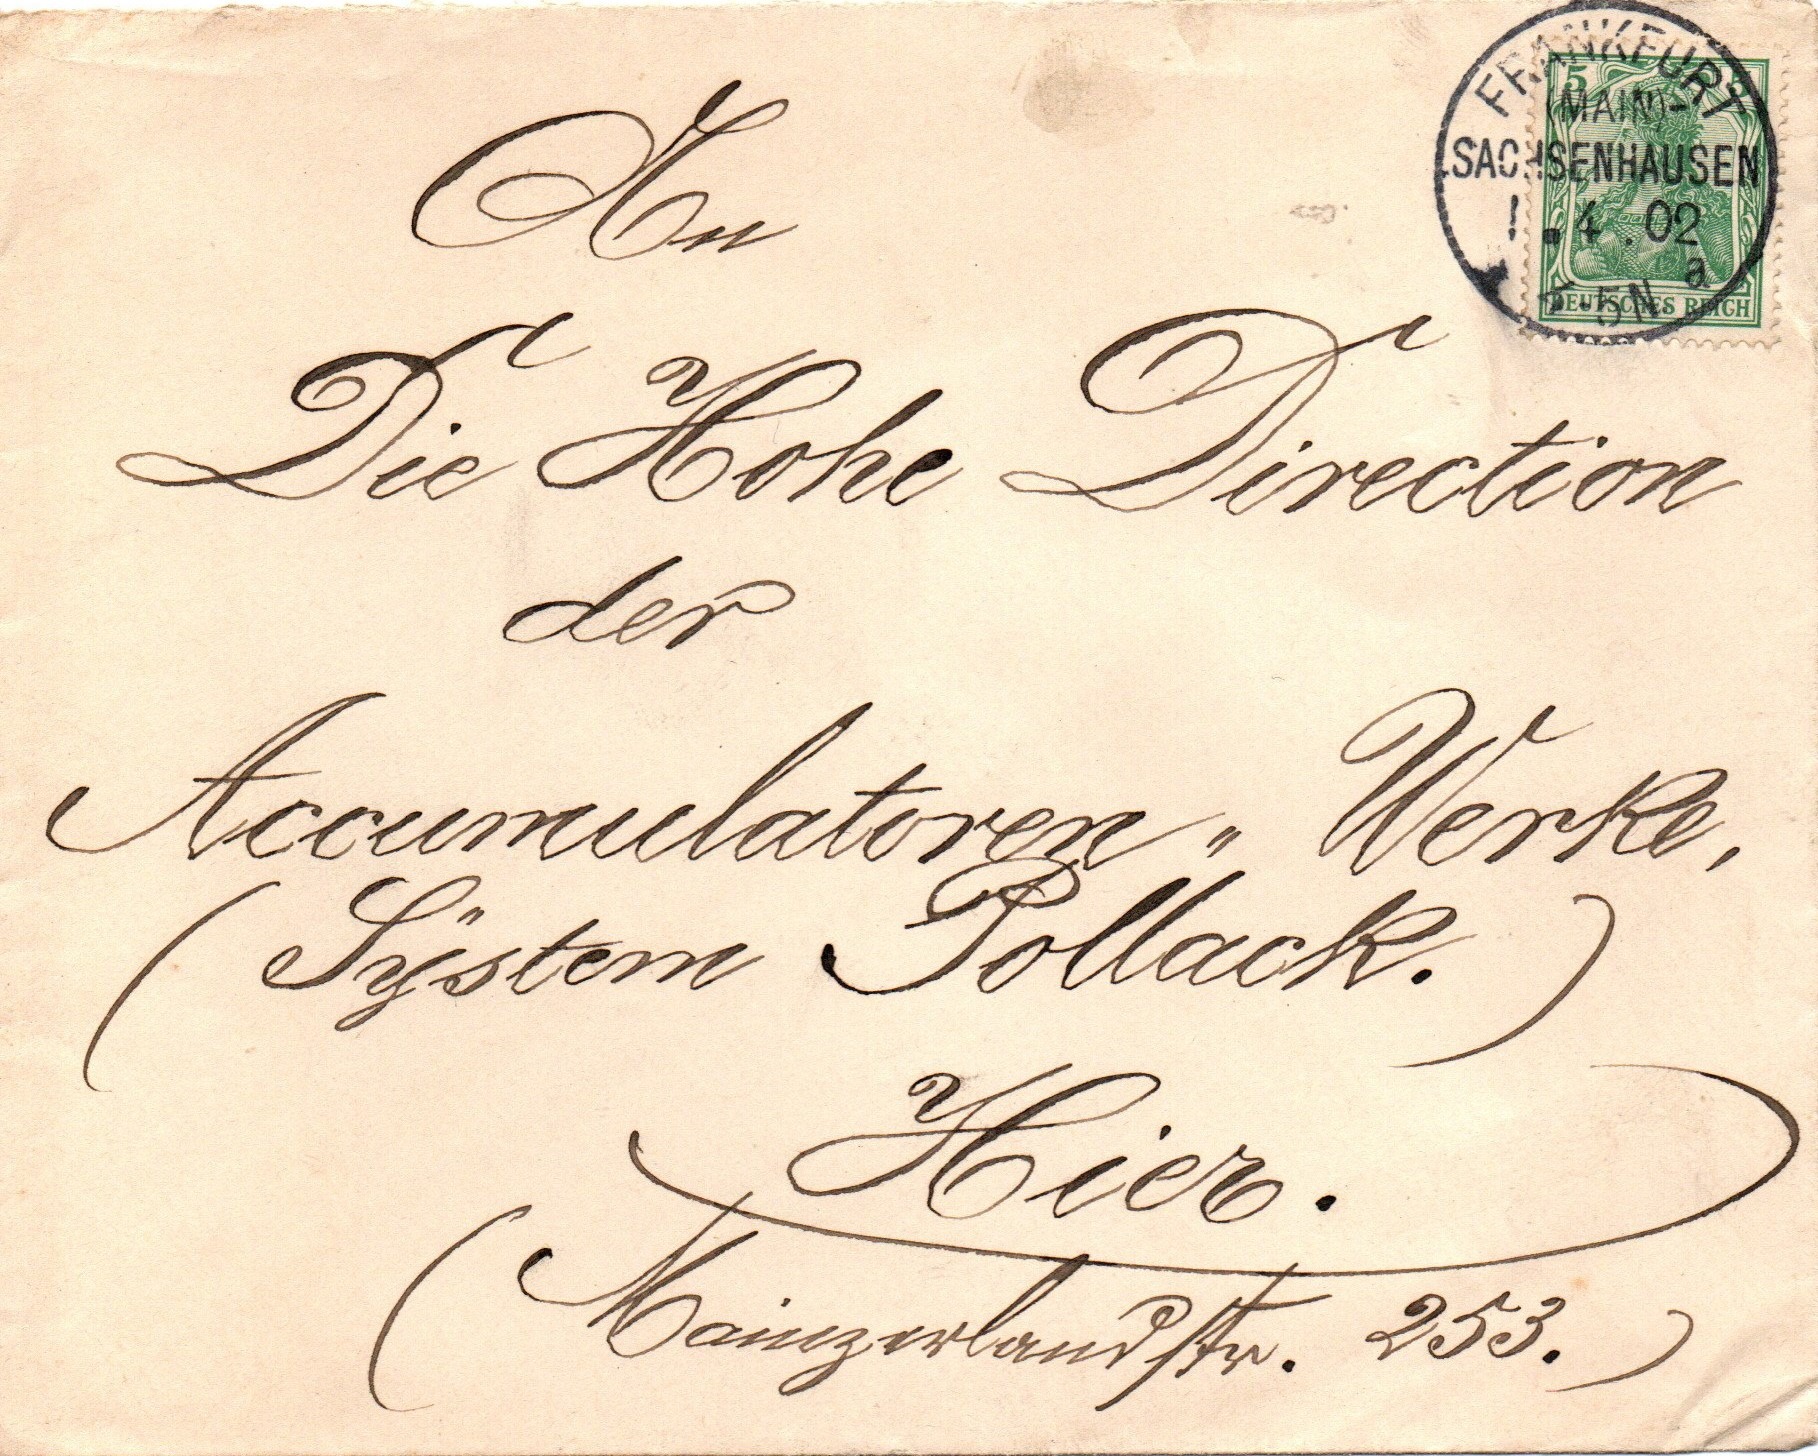 FRANKFURT
(MAIN)-
SACHSENHAUSEN
1.4.02
a
5
DEUTSCHES REICH
An
Die Hohe Direction
der
Accumulatoren „ Werke,
(Sÿstem Pollack.)
Hier.
(Mainzerlandstr. 253.)